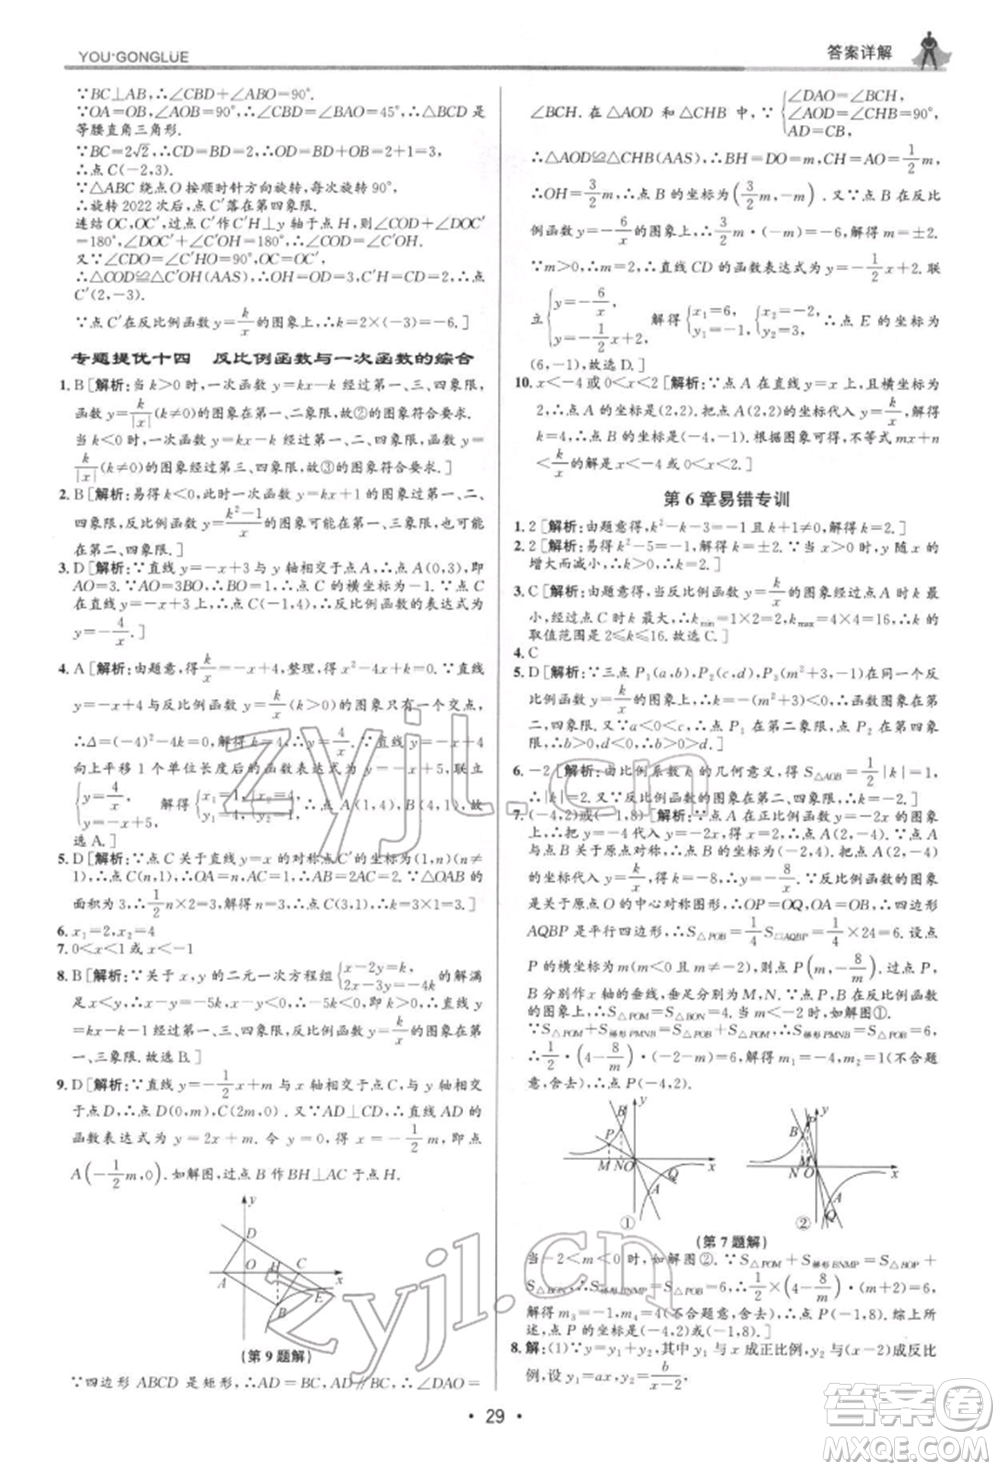 YOU·GONGLUE
答案详解
∵BC⊥AB,∴∠CBD+∠ABO=90°.
∵OA=OB,∠AOB=90°,∴∠CBD=∠BAO=45°,∴△BCD是
等腰直角三角形.
∵BC=2√2,∴CD=BD=2,∴OD=OB+BD=1+2=3,
∴点C(-2,3).
∵△ABC绕点O按顺时针方向旋转,每次旋转90°,
∴旋转2022次后,点C′落在第四象限.
连结OC,OC′,过点C′作C′H⊥y轴于点H,则∠COD+∠DOC′
=180°,∠DOC′+∠C′OH=180°,∴∠COD=∠C′OH.
又∵∠CDO=∠C′HO=90°,OC=OC′,
∴△COD≌△C′OH(AAS),∴OH=OD=3,C′H=CD=2,∴点
C′(2,-3).
∵点C′在反比例函数y=k/x的图象上,∴k=2×(-3)=-6.]
专题提优十四 反比例函数与一次函数的综合
1. B[解析:当k>0时,一次函数的图象经过第一、三、四象限,反比例
函数y=k/|x|(k≠0)的图象在第一、二象限,故②的图象符合要求.
当k<0时,一次函数的图象经过第一、二、四象限,反比例函数y=
k/|x|(k≠0)的图象经过第三、四象限,故③的图象符合要求.]
2. B[解析:易得k<0,∴一次函数y=kx-k的图象经过第一、二、四象
限.∵b=-k,∴反比例函数y=
在第二、四象限.]
3. D[解析:∵直线y=-x+3与y轴相交于点A,∴点A(0,3),即
AO=3.∵AO=3BO,∴BO=1,∴点C的横坐标为-1.∵点C
在直线y=-x+3上,∴点C(-1,4),∴反比例函数的表达式为
y=-4/x.]
4. A[解析:由题意,得k/x=-x+4,整理,得x²-4x+k=0.∵直线
y=-x+4与反比例函数y=k/x的图象有唯一一个交点,
∴Δ=(-4)²-4k=0,解得k=4,∴y=4/x.∵直线y=-x+4
向上平移1个单位长度后的函数表达式为y=-x+5,联立
{y=4/x, y=-x+5, 解得{x₁=1,y₁=4, {x₂=4,y₂=1, ∴点A(1,4),点B(4,1).故
选A.]
5. D[解析:∵点C关于直线y=x的对称点C′的坐标为(1,n)(n≠
1),∴点C(n,1),∴OA=n,AC=1,∴AB=2AC=2.∵△OAB的
面积为3,∴1/2n×2=3,解得n=3,∴点C(3,1),∴k=3×1=3.]
6. x₁=2,x₂=4
7. 0<x<1或x<-1
8. B[解析:∵关于x,y的二元一次方程组{x-2y=k, 2x-3y=-4k的解满
足x<y,∴x-y=-5k,∴-5k<0,∴k>0,∴关于x的一次函
数y=kx+k的图象经过第一、二、三象限,反比例函数y=k/x在第
一、三象限.故选B.]
9. D[解析:∵直线y=-1/2x+m与x轴相交于点C,与y轴相交于
点D,∴点D(0,m),C(2m,0).又∵AD⊥CD,∴直线AD的
函数表达式为y=2x+m.令y=0,得2x+m=0,x=-1/2m,∴点
A(-1/2m,0).如解图,过点B作BH⊥AC于点H.
y D A O H C x B E
(第9题解)
∵四边形ABCD是矩形,∴AD=CB,AD∥BC,∴∠DAO=
∠BCH.在△AOD和△CHB中,∵{∠DAO=∠BCH, ∠AOD=∠CHB=90°, AD=CB,
∴△AOD≌△CHB(AAS),∴BH=DO=m,CH=AO=1/2m,
∴OH=3/2m,∴点B的坐标为(3/2m,-m).又∵点B在反比
例函数y=-6/x的图象上,∴3/2m·(-m)=-6,解得m=±2.
∵m>0,∴m=2,∴直线CD的函数表达式为y=-1/2x+2.联
立{y=-6/x, y=-1/2x+2, 解得{x₁=6,y₁=-1, {x₂=-2,y₂=3, ∴点E的坐标为
(6,-1).故选D.]
10. x<-4或0<x<2[解析:∵点A在直线y=x上,且点A的横坐标为
2,∴点A的坐标是(2,2).把点A(2,2)代入y=k/x,解得
k=4,∴点B的坐标是(-4,-1).根据图象可得,不等式mx+n
<k/x的解是x<-4或0<x<2.]
第6章易错专训
1. 2[解析:由题意得,k²-k-3=-1且k+1≠0,解得k=2.]
2. 2[解析:易得k²-5=-1,解得k=±2.∵当x>0时,y随x的
增大而减小,∴k>0,∴k=2.]
3. C[解析:由题意得当函数图象过点A时k最小,过点C时k最大,∵点A(1,2),
∴k_min=1×2=2,k_max=4×4=16,∴k的
取值范围是2≤k≤16.故选C.]
4. C
5. D[解析:∵三点P₁(a,b),P₂(c,d),P₃(m²+2,-1)在同一个反
比例函数的图象上,∴k=-(m²+2)<0,∴该反比例函数在第
二、四象限.又∵a<0<c,∴点P₁在第二象限,点P₂在第四象
限,∴b>0,d<0,∴b>0>d.]
6. -2[解析:由比例系数k的几何意义,得S△AOB=1/2|k|=1,解得
|k|=2.∵反比例函数的图象在第二、四象限,∴k<0,∴k=-2.]
7. (-4,2)或(-1,8)[解析:∵点A在正比例函数y=-2x的图象上,点A与
点B关于原点对称,∴点B(-2,4),点A(2,-4).∵点A在反比
例函数y=k/x的图象上,∴k=-8,∴y=-8/x.∵反比例函数的图象
是关于原点O的中心对称图形,∴OP=OQ,OA=OB,∴四边形
AQBP是平行四边形,∴S△POB=1/4S▱AQBP=1/4×24=6.设点
P的横坐标为m(m<0且m≠-2),则点P(m,-8/m).过点P,
B分别作x轴的垂线,垂足为M,N.∵点P,B在反比例函数
的图象上,∴S△POM=S△BON=4.当m<-2时,如解图①.
∵S△POM+S梯形PMNB=S△POB+S△POM,∴S梯形PMNB=S△POB=6,
∴1/2·(4-8/m)·(-2-m)=6,解得m₁=-4,m₂=1(不合题
意,舍去),∴点P(-4,2).
y B P M N O x A ①
y P B N M O x A ②
(第7题解)
当-2<m<0时,如解图②.∵S△POM+S梯形BNMP=S△BOP+
S△BON,∴S梯形BNMP=S△POB=6,∴1/2·(4-8/m)·(m+2)=6,
解得m₃=-1,m₄=4(不合题意,舍去),∴点P(-1,8).综上所
述,点P(-4,2)或(-1,8).]
8. 解:(1)∵y=y₁+y₂,其中y₁与x成正比例,y₂与(x-2)成反比
例,∴设y₁=ax(a≠0),y₂=b/(x-2)(b≠0),
zyjl.cn
zyjl.cn
答案圈
MXQE.COM
· 29 ·